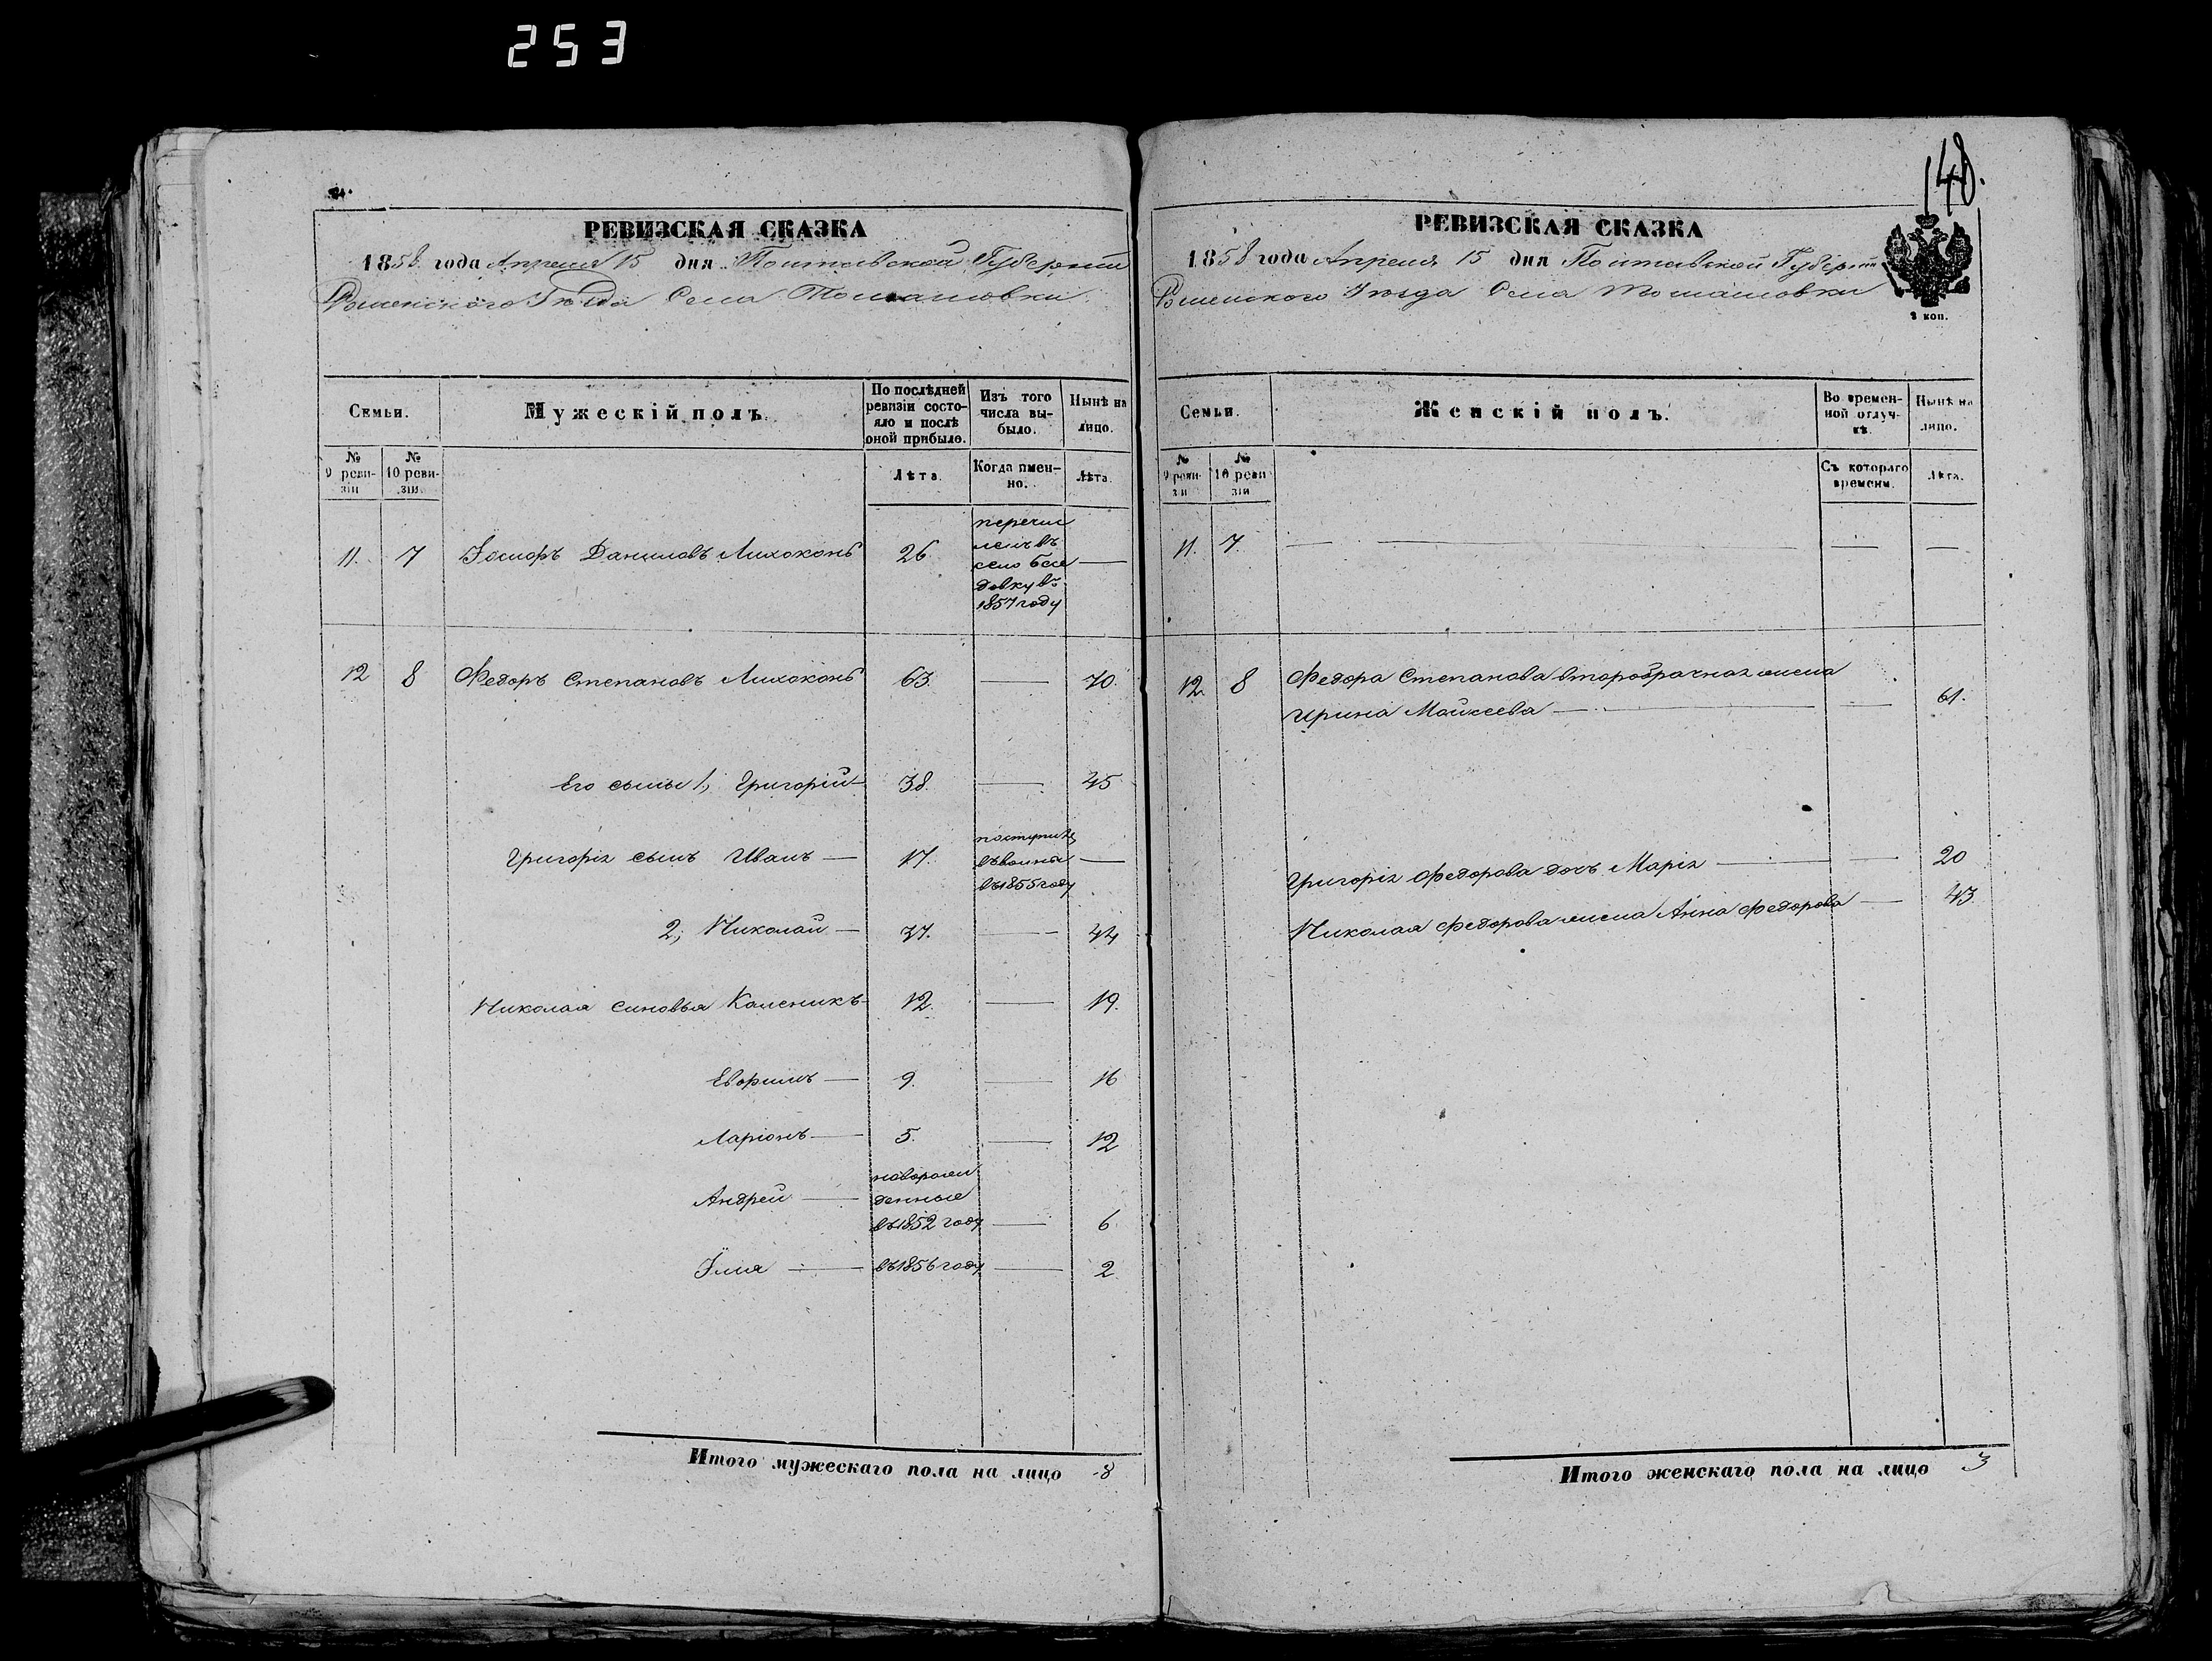 253
148.
РЕВИЗСКАЯ СКАЗКА
1858 года Апреля 15 дня Полтавской Губерніи
Роменского Уѣзда Села Томашовки
Семьи.
Мужескій полъ.
По послѣдней ревизіи состояло и послѣ оной прибыло.
Изъ того числа выбыло.
Нынѣ на лицо.
№ 9 ревизіи
№ 10 ревизіи
Лѣта.
Когда именно.
Лѣта.
11. 7 Іосифъ Даниловъ Лихоконь 26 —
перечис
ленъ въ
село Бесе
довку въ
1857 году
12 8 Федоръ Степановъ Лихоконь 63. — 70.
Его сыны 1, Григорій 38. — 45
Григорія сынъ Иванъ — 17. —
поступилъ
въ воины
въ 1855 году
2, Николай — 37. — 44
Николая синовья Каленикъ 12. — 19.
Евфимъ — 9. — 16
Ларіонъ — 5. — 12
Андрей —
новорож
денные
въ 1852 году — 6
Ілия — въ 1856 году — 2
Итого мужескаго пола на лицо 8
РЕВИЗСКАЯ СКАЗКА
1858 года Апреля 15 дня Полтавской Губерніи
Роменского Уѣзда Села Томашовки
2 коп.
Семьи.
Женскій полъ.
Во временной отлучкѣ.
Нынѣ на лицо.
№ 9 ревизіи
№ 10 ревизіи
Съ котораго времени.
Лѣта.
11. 7. — — —
12. 8 Федора Степанова второбрачная жена
Ирина Мойсеева — — 61.
Григорія Федорова дочь Марія — — 20
Николая Федорова жена Анна Федорова — 43.
Итого женскаго пола на лицо 3